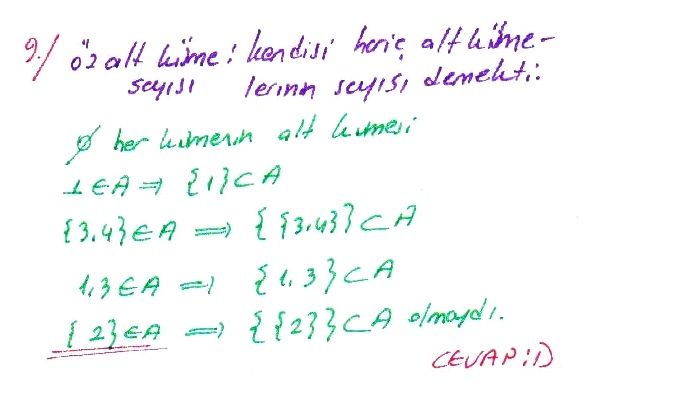 9./ öz alt küme : kendisi hariç alt küme-
sayısı lerinin sayısı demekti.
∅ her kümenin alt kümesi
1 ∈ A ⇒ {1} ⊂ A
{3,4} ∈ A ⇒ { {3,4} } ⊂ A
1,3 ∈ A ⇒ {1,3} ⊂ A
{2} ∈ A ⇒ { {2} } ⊂ A olmaydı.
CEVAP : D